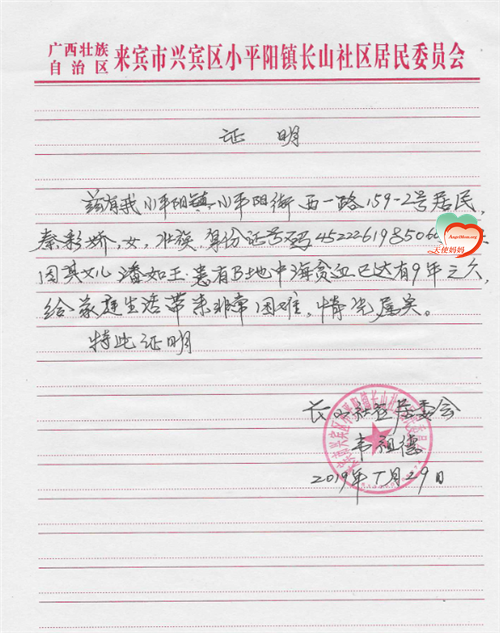 广西壮族
自治区 来宾市兴宾区小平阳镇长山社区居民委员会
证明
兹有我小平阳镇小平阳街西一路159-2号居民,
秦彩娇,女,壮族,身份证号码4522261985060
天使妈妈
因其女儿潘如玉患有B地中海贫血已达有9年之久,
给家庭生活带来非常困难,情况属实。
特此证明
长山社区居委会
韦祖德
2019年 月29日